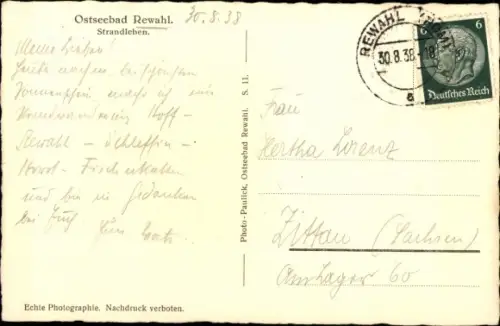 Ostseebad Rewahl.
Strandleben.
30.8.38
Meine Lieben!
Heute nachm.
Sonnenschein mache ich eine
Hoff -
Rewahl - Schleffin -
Horst - Fischerkaten
und bin in Gedanken
bei Euch Eure
Echte Photographie. Nachdruck verboten.
Photo-Paulick, Ostseebad Rewahl. S. 11.
REWAHL
30.8.38-18
a
6
Deutsches Reich
Frau
Hertha Lorenz
Zittau (Sachsen)
Am Lager 60